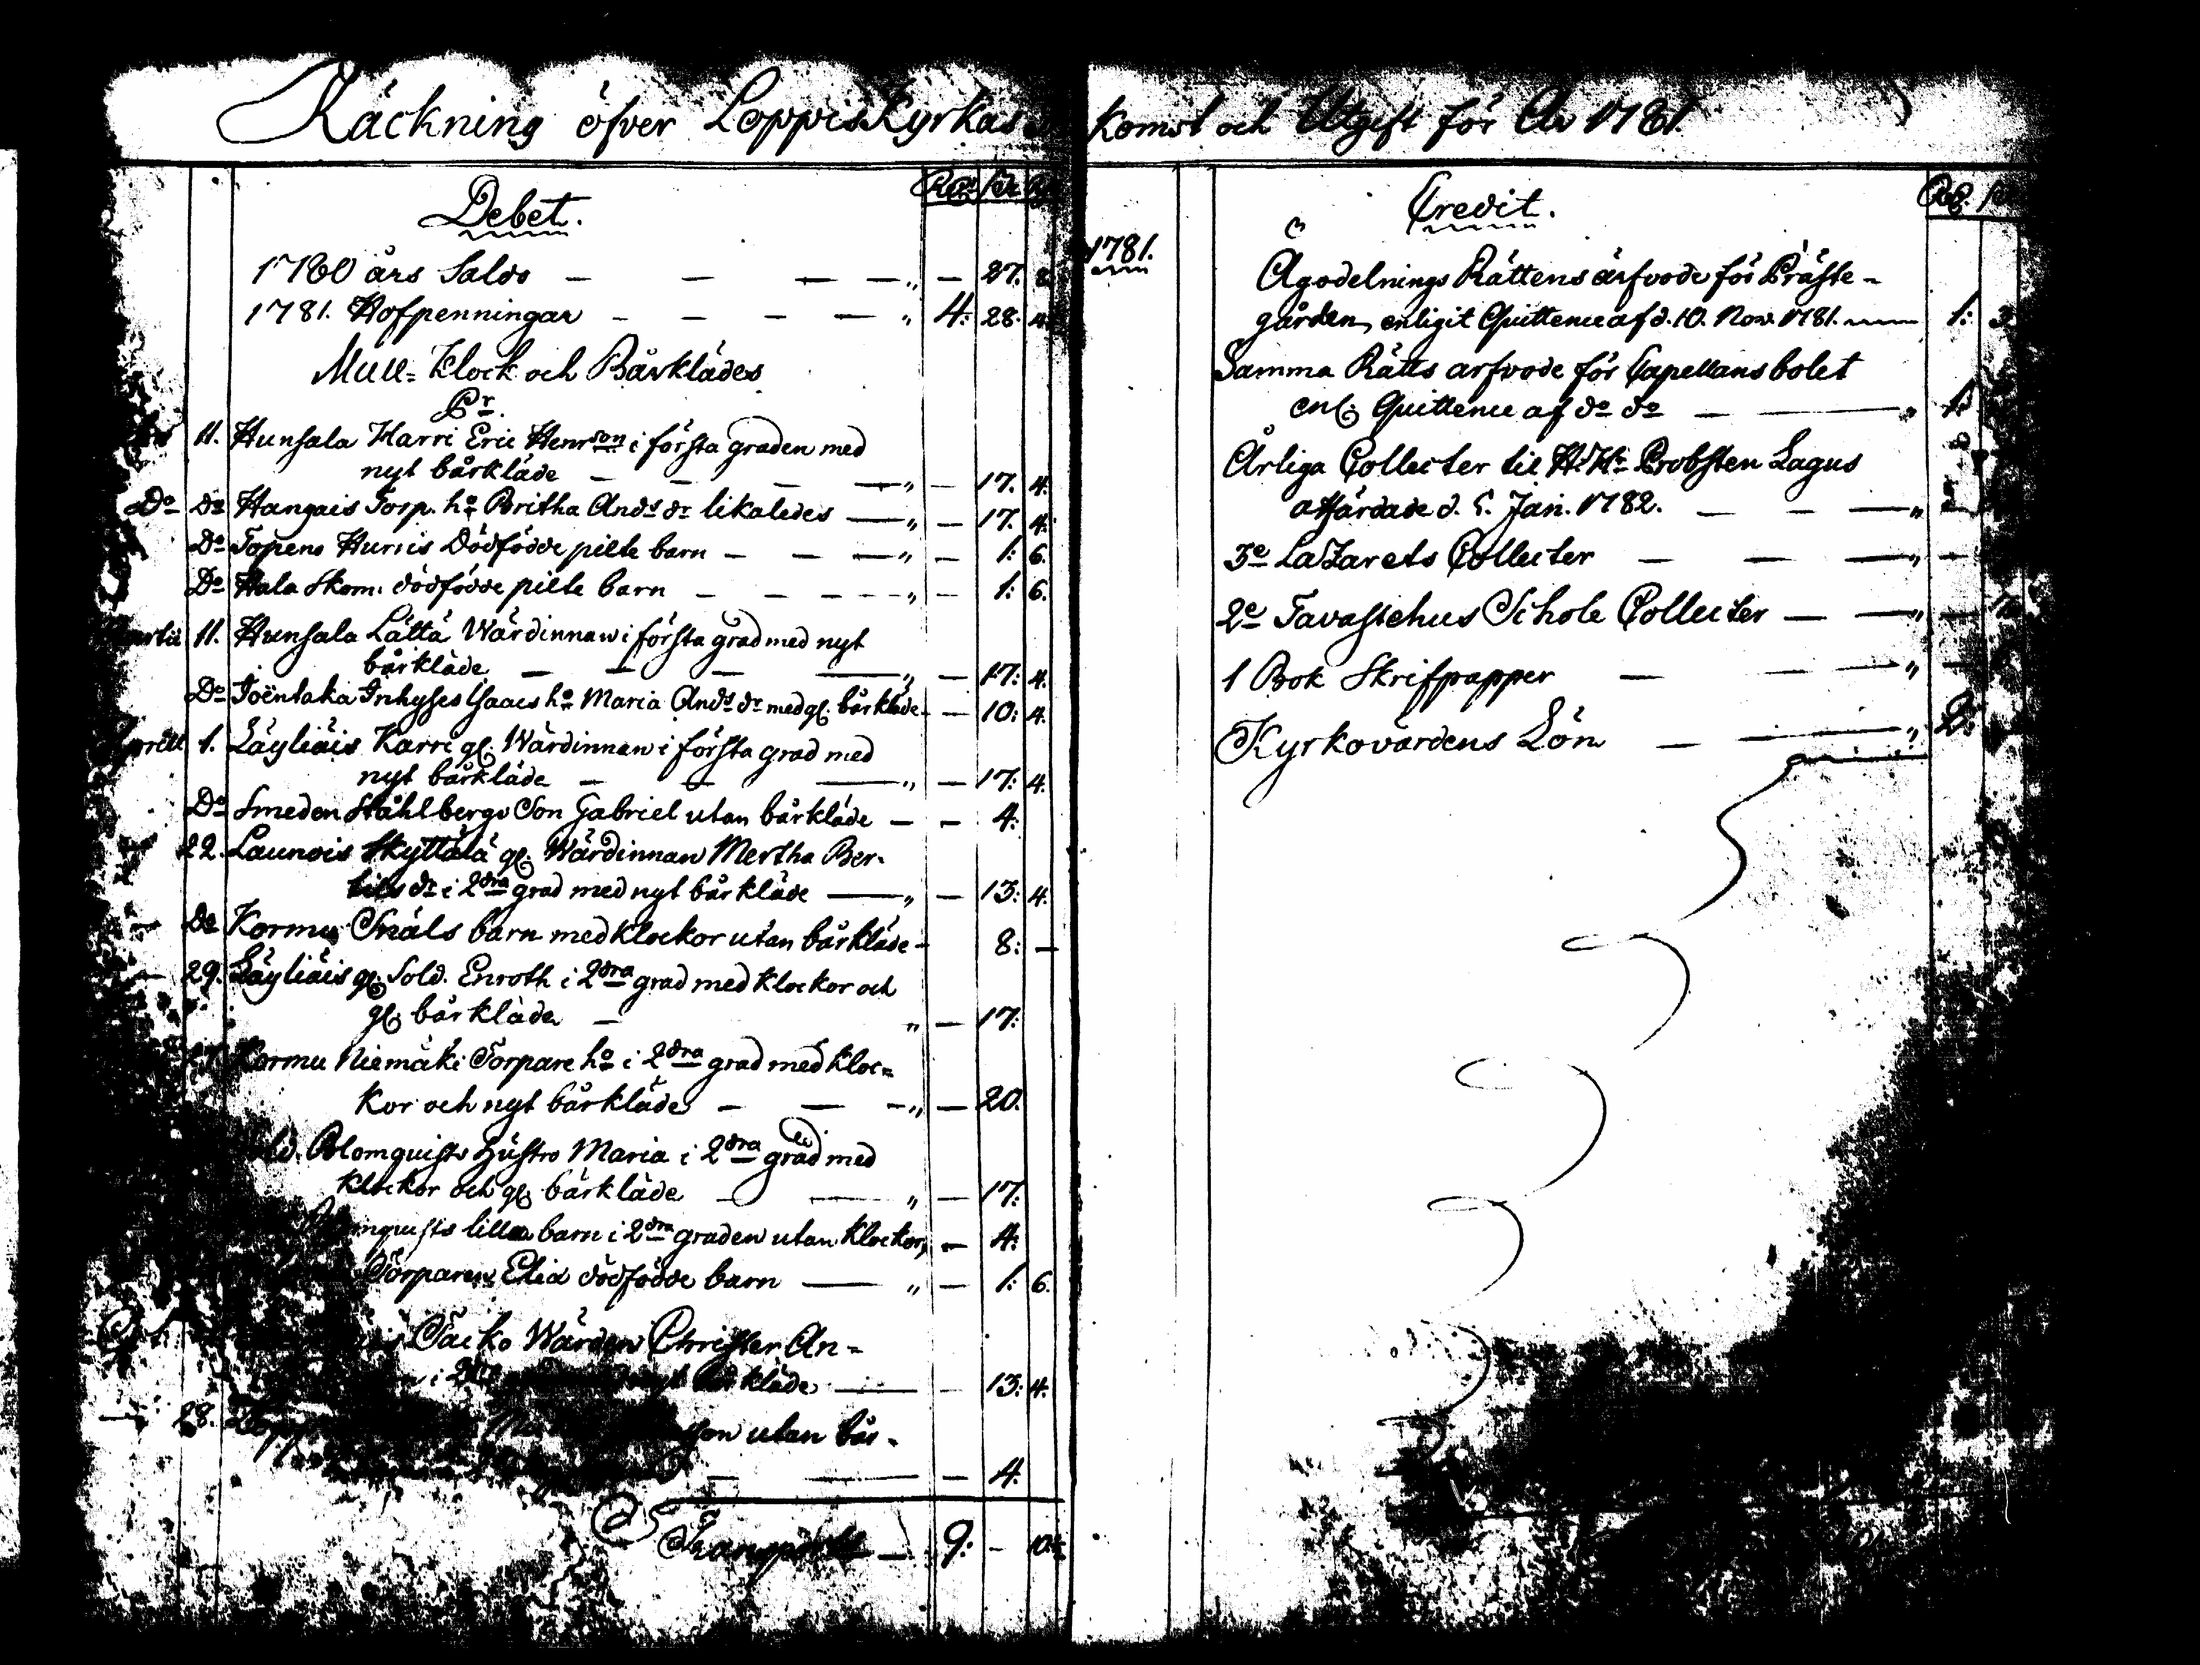 Räckning öfver Loppis Kyrkas
Debet.
Rd:r sk: rs
1780 års Saldo — — — — „ — 27. 8
1781. Hofpenningar — — — — „ 4: 28. 4
Mull- Klock och Bårklädes
Pr.
11. Hunsala Harri Eric Henrson i första graden med
nyt bårkläde — — — — „ — 17. 4.
Do Do Hangais Torp. ho Britha Ands dr likaledes — „ — 17. 4.
Do Topeno Hurris Dödfödde pilte barn — — — „ — 1: 6.
Do Hala Skom. dödfödde pilte barn — — — — „ — 1: 6.
Martii 11. Hunsala Lättä Wärdinnan i första grad med nyt
bårkläde — — — — „ — 17: 4.
Do Joëntaka Inhyses Isaacs ho Maria Ands dr med gl. bårkläde — — 10: 4.
Aprill 1. Läyliäis Karri gl. Wärdinnan i första grad med
nyt bårkläde — — — „ — 17: 4.
Do Smeden Ståhlbergs Son Gabriel utan bårkläde — — 4:
22. Launois Skyttälä gl. Wärdinnan Mertha Ber-
tils dr i 2dra grad med nyt bårkläde — „ — 13: 4.
Do Kormu Snäls barn med klockor utan bårkläde — 8: —
29. Läyliäis gl. Sold. Enroth i 2dra grad med klockor och
gl. bårkläde — „ — 17:
Kormu Niemäki Torpare ho i 2dra grad med kloc-
kor och nyt bårkläde — — — „ — 20.
Blomquists Hustro Maria i 2dra grad med
klockor och gl. bårkläde — — „ — 17:
lilla barn i 2dra graden utan klockor, — 4:
Torparen Elia dödfödde barn — „ — 1: 6.
Jacko Wärden Christer An-
i bårkläde — — 13: 4.
28. utan bår-
— — — 4.
Transport — 9: —
komst och Utgift för Åv 1781.
Credit.
Rd. sk
1781.
Ägodelnings Rättens arfvode för Präste-
gården, enligit Quittence af d. 10. Nov. 1781. — 1: 3
Samma Rätts arfvode för Capellans bolet
enl. Quittence af do do — — „ 1.
Årliga Collecter til H. Hr Probsten Lagus
affärdade d. 5. Jan. 1782. — — — „
3e Lazarets Collecter — — — „ —
2e Tavastehus Schole Collecter — — „ —
1 Bok Skrifpapper — — — „ —
Kyrkovärdens Lön — — — „ 2: